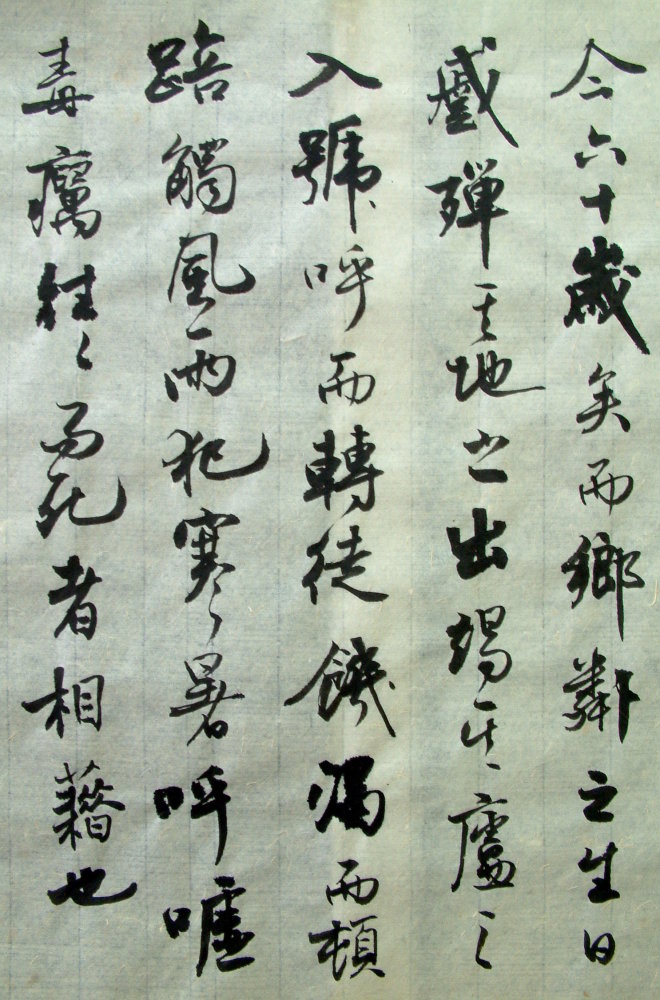 今六十歲矣而鄉鄰之生日
蹙殫其地之出竭其廬之
入號呼而轉徙饑渴而頓
踣觸風雨犯寒暑呼噓
毒癘往々而死者相藉也